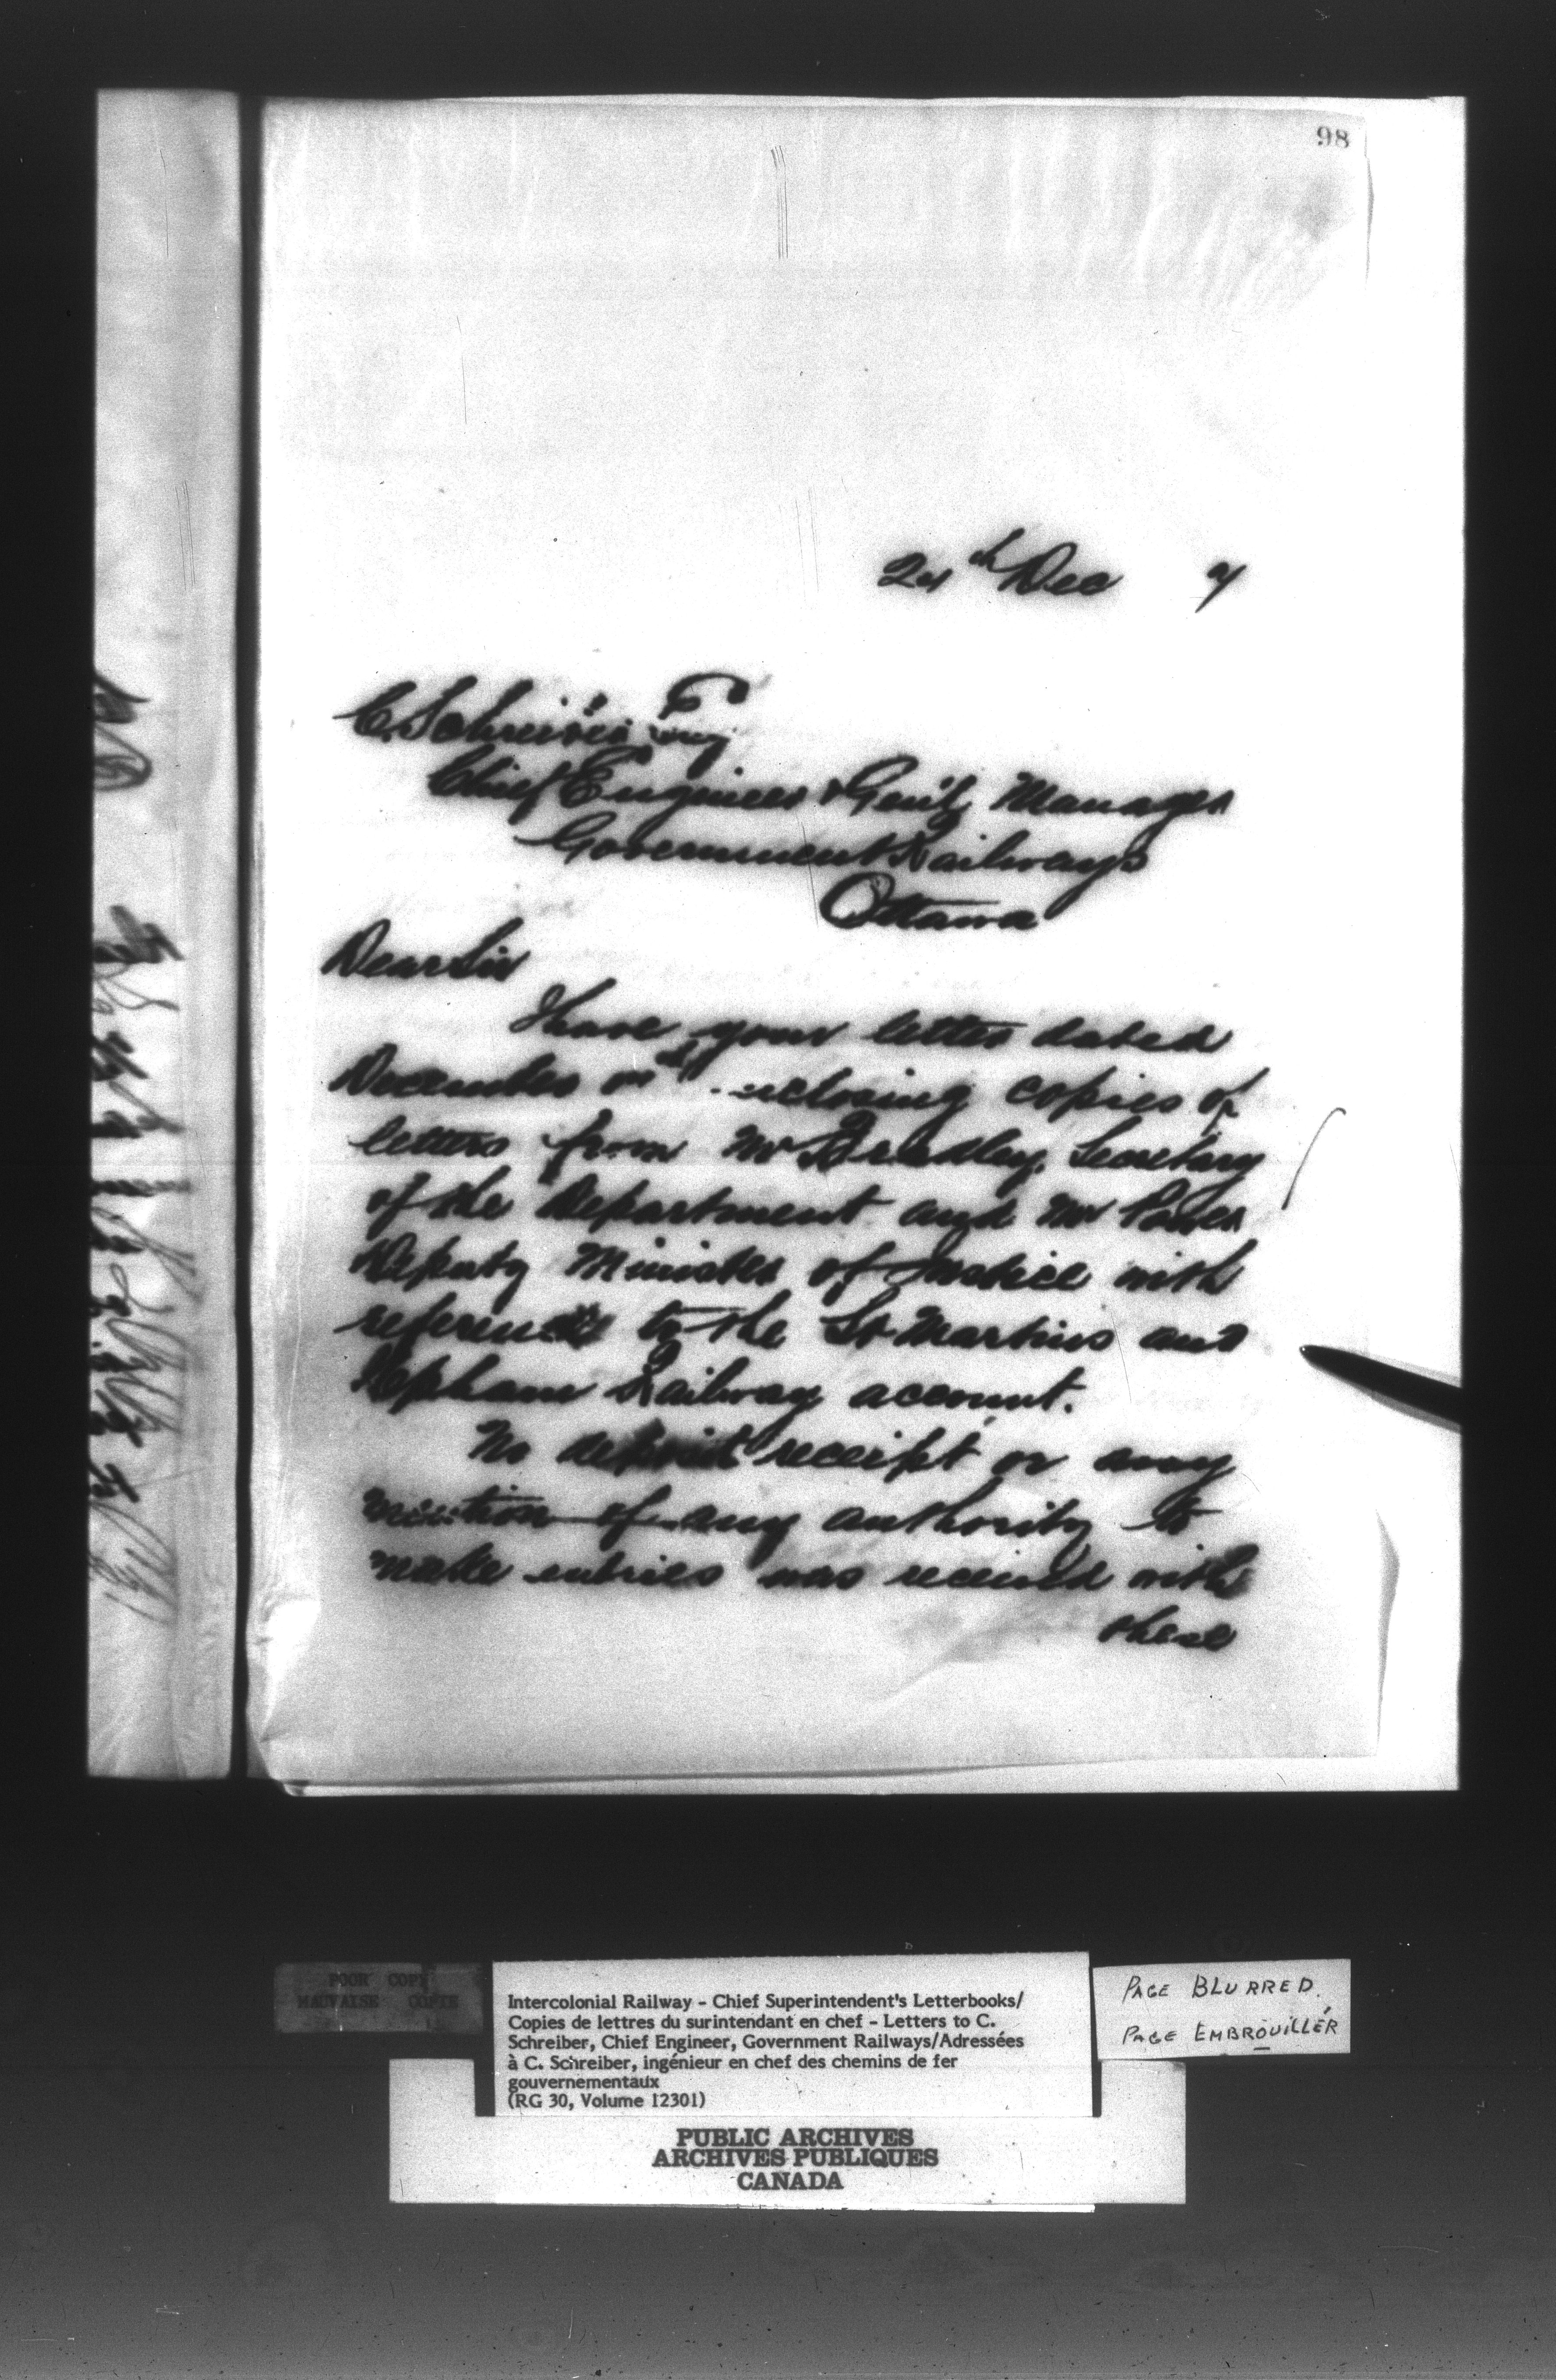 98
24th Dec 7
C. Schreiber Esq
Chief Engineer & Gen'l Manager
Government Railways
Ottawa
Dear Sir
I have your letter dated
December enclosing copies of
letters from Mr Bradley, Secretary
of the Department and Mr Power
Deputy Minister of Justice with
reference to the St Martins and
Upham Railway account.
No deposit receipt or any
mention of any authority to
make entries was received with
these
POOR COPY
MAUVAISE COPIE
Intercolonial Railway - Chief Superintendent's Letterbooks/
Copies de lettres du surintendant en chef - Letters to C.
Schreiber, Chief Engineer, Government Railways/Adressées
à C. Schreiber, ingénieur en chef des chemins de fer
gouvernementaux
(RG 30, Volume 12301)
PAGE BLURRED.
PAGE EMBROUILLÉR
PUBLIC ARCHIVES
ARCHIVES PUBLIQUES
CANADA